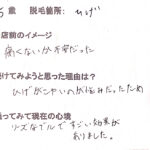 歳 脱毛箇所: ひげ
店前のイメージ
痛くないか不安だった
けてみようと思った理由は?
ひげがこいのが悩みだったため
ってみて現在の心境
リーズナブルですごい効果が
ありました。